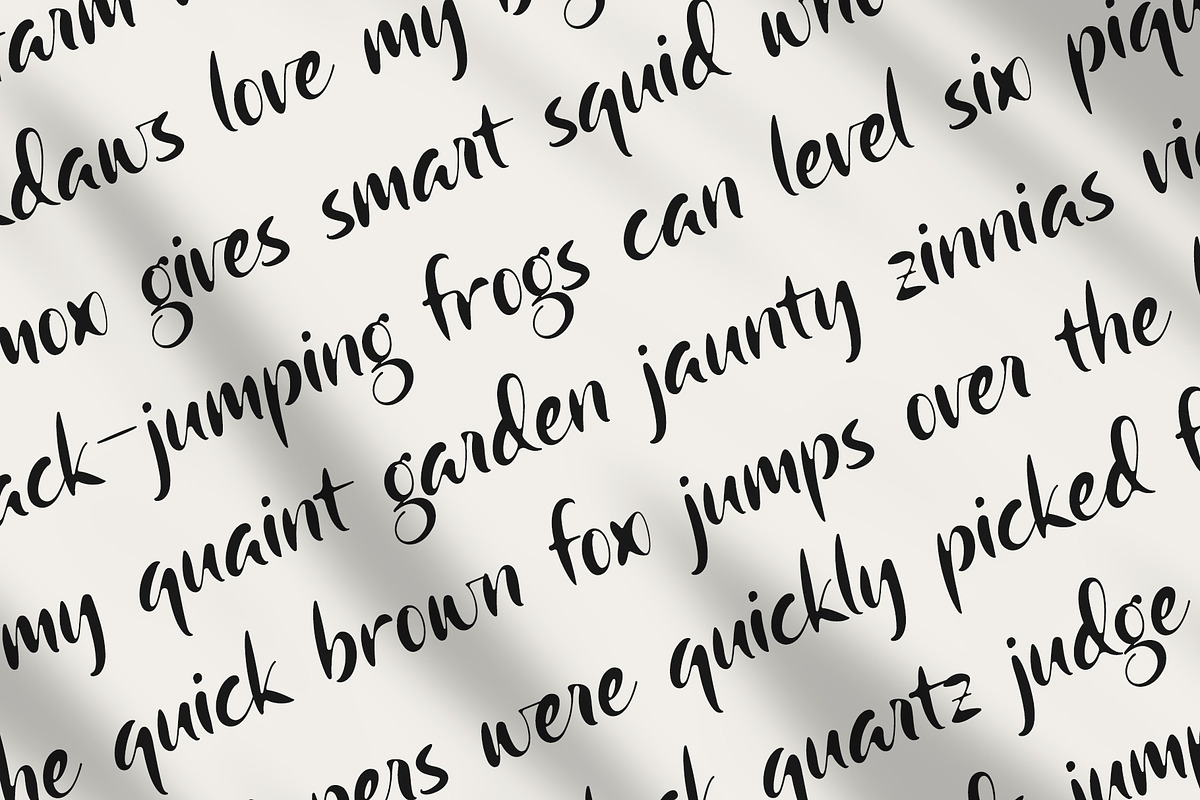 arm
kdaws love my
nox gives smart squid who
ack-jumping frogs can level six piqu
my quaint garden jaunty zinnias vie
he quick brown fox jumps over the
pers were quickly picked f
ck quartz judge
jump